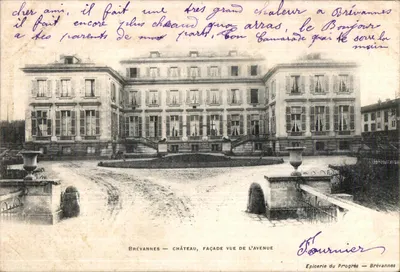 cher ami, il fait une tres grand chaleur a Brévannes
il fait encore plus chaud que arras, le Bonjour
a tes parents de ma part. ton Camarade qui te serre la
main
BRÉVANNES — CHÂTEAU, FAÇADE VUE DE L'AVENUE
Fournier
Epicerie du Progrès — Brévannes